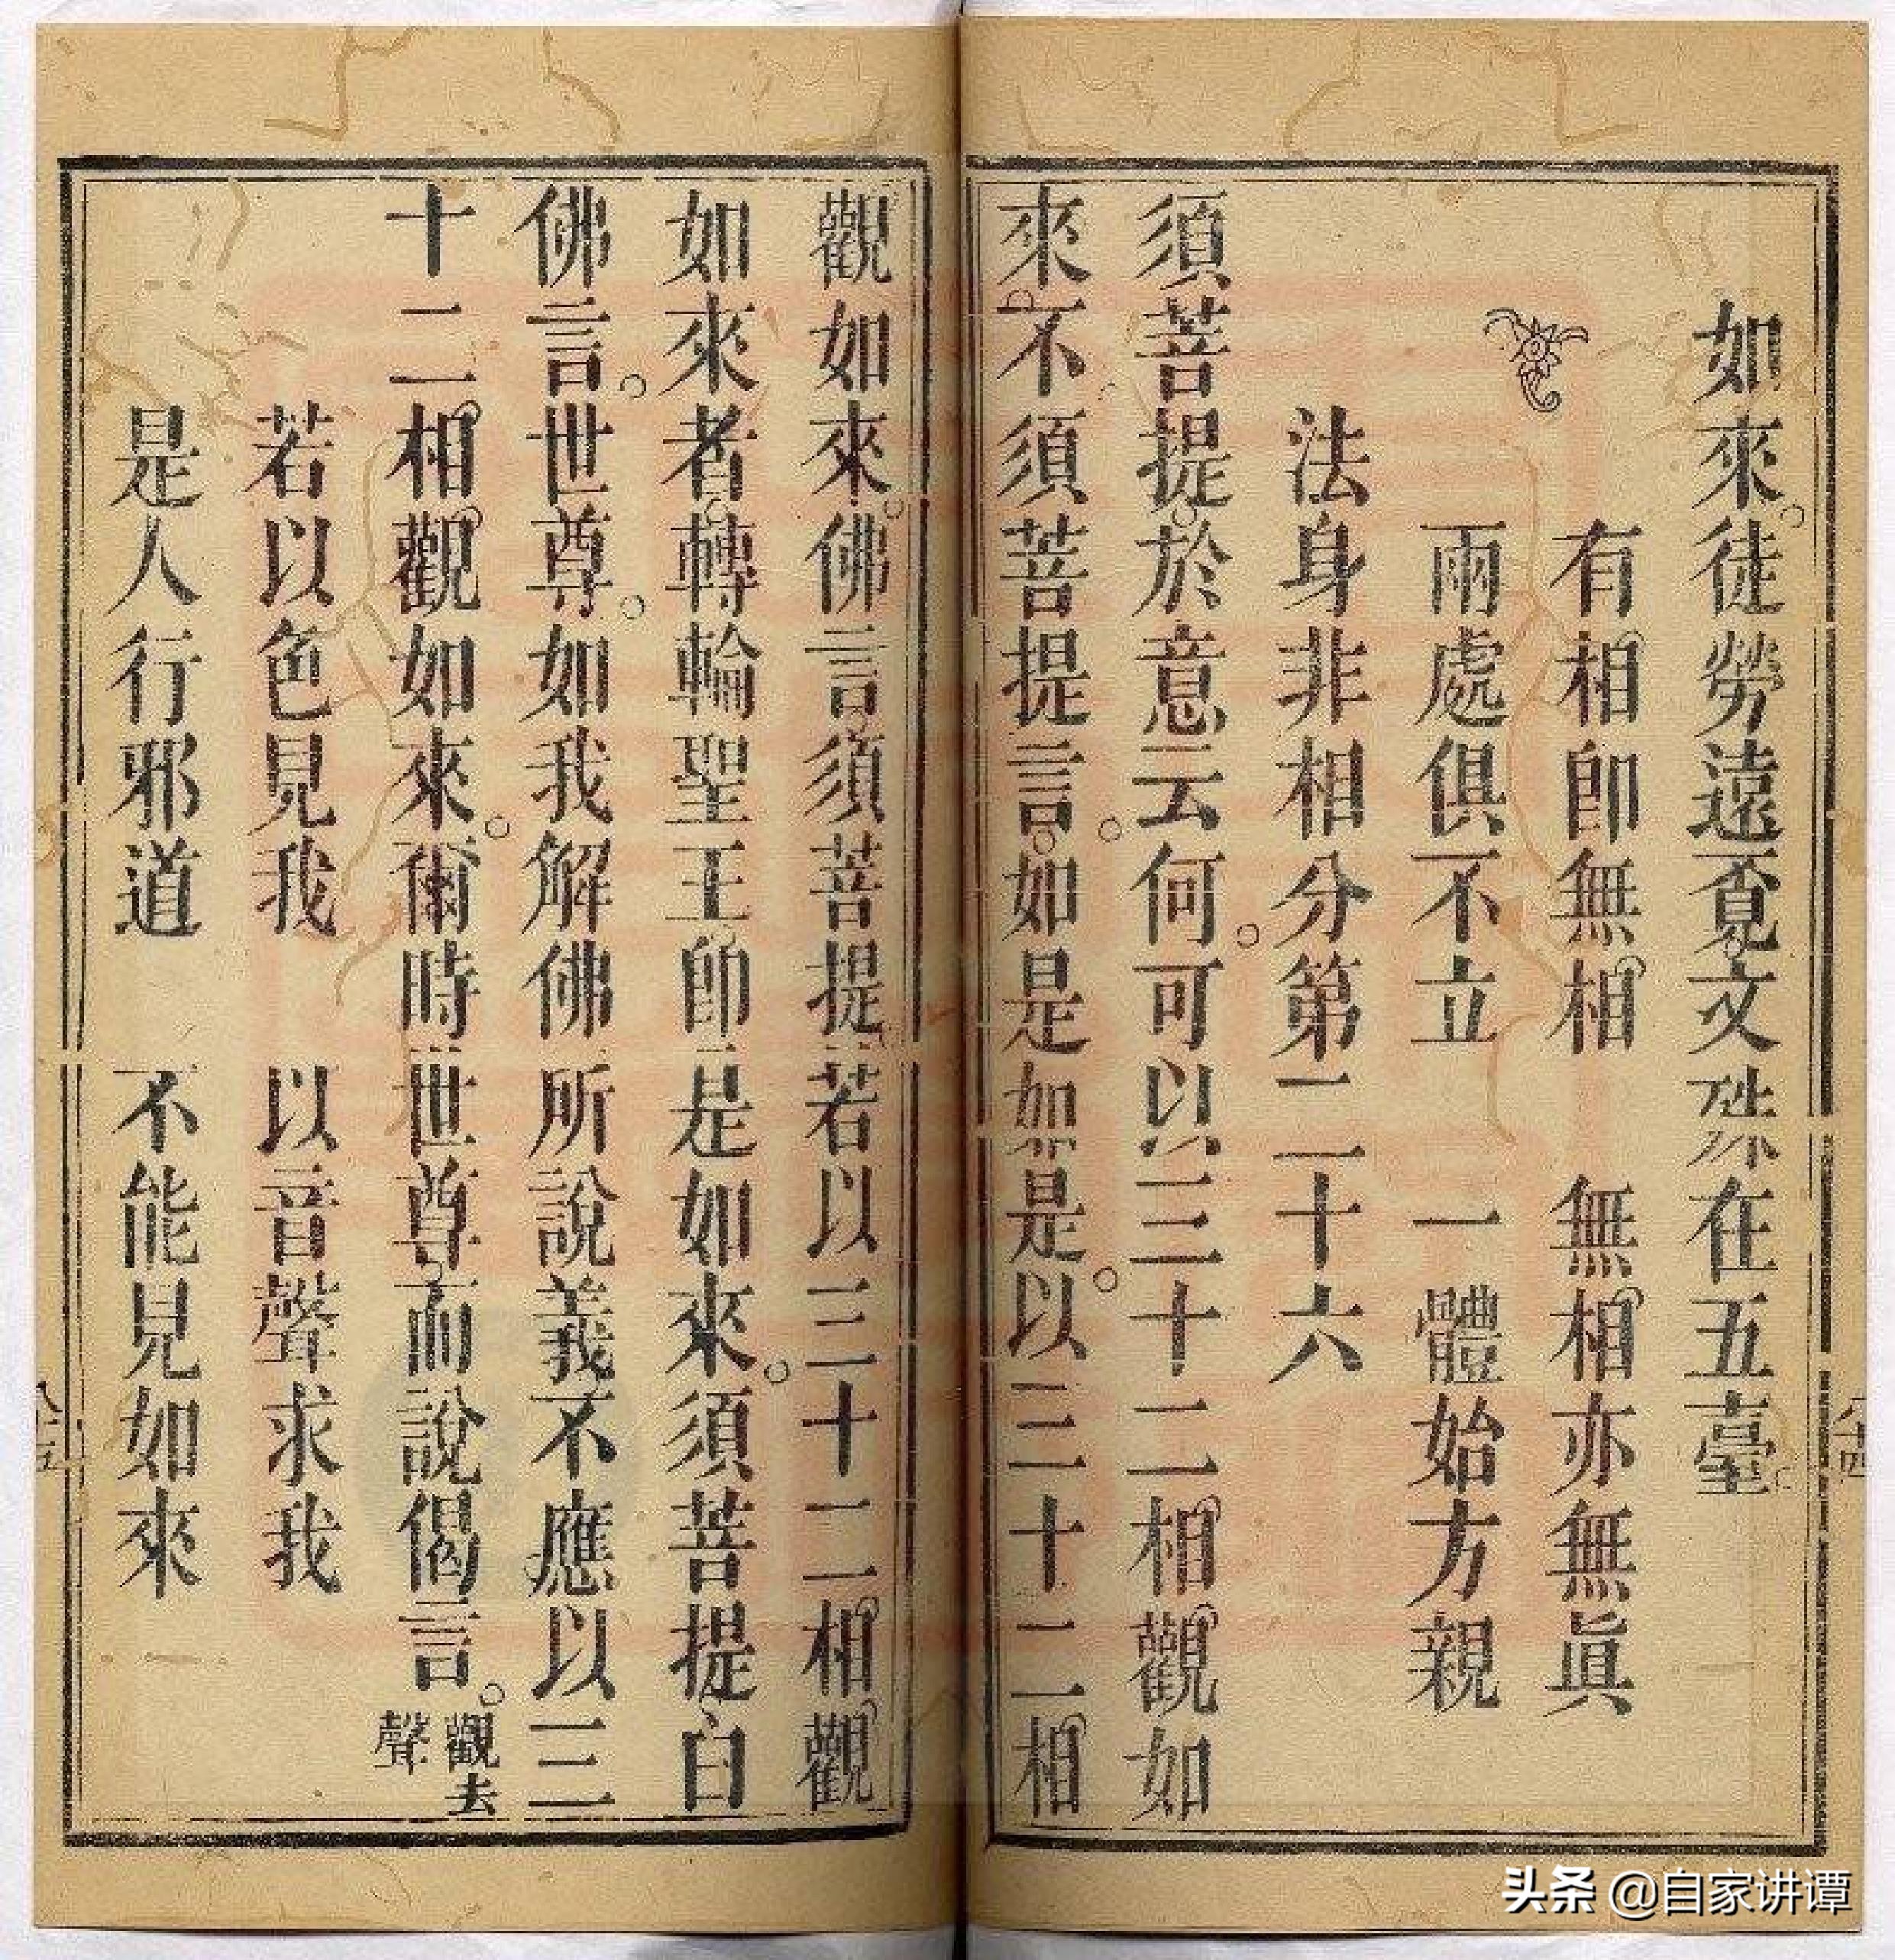 如來。徒勞遠覓。文殊在五臺。
有相即無相　無相亦無眞
兩處俱不立　一體始方親
法身非相分第二十六
須菩提。於意云何。可以三十二相觀如
來不。須菩提言。如是如是。以三十二相
觀如來。佛言。須菩提。若以三十二相觀
如來者。轉輪聖王即是如來。須菩提白
佛言。世尊。如我解佛所說義。不應以三
十二相觀如來。爾時世尊。而說偈言。觀去聲
若以色見我　以音聲求我
是人行邪道　不能見如來
八十四
八十五
头条 @自家讲谭